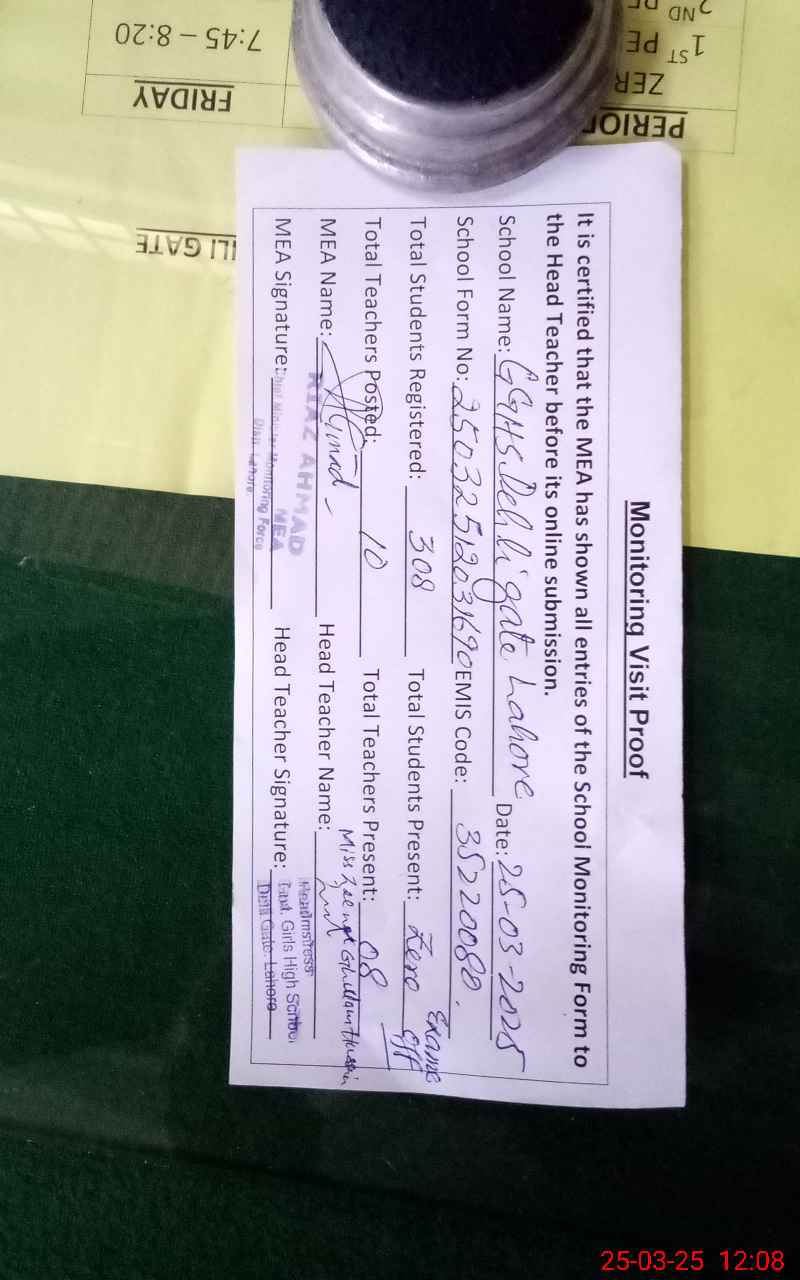 Monitoring Visit Proof
It is certified that the MEA has shown all entries of the School Monitoring Form to
the Head Teacher before its online submission.
School Name: GGHS Dehli gate Lahore Date: 25-03-2025
School Form No: 25032512031690 EMIS Code: 35220080.
Total Students Registered: 308 Total Students Present: Zero Exams off
Total Teachers Posted: 10 Total Teachers Present: 08
MEA Name: Head Teacher Name: Miss Zeenat Ghullam Hussain
RIAZ AHMAD
MEA
Chief Minister Monitoring Force
Distt. Lahore
MEA Signature: Head Teacher Signature:
Headmistress
Govt. Girls High School
Delhi Gate. Lahore
PERIOD FRIDAY
ZER
1ST PE 7:45 – 8:20
2ND PE
LI GATE
25-03-25 12:08